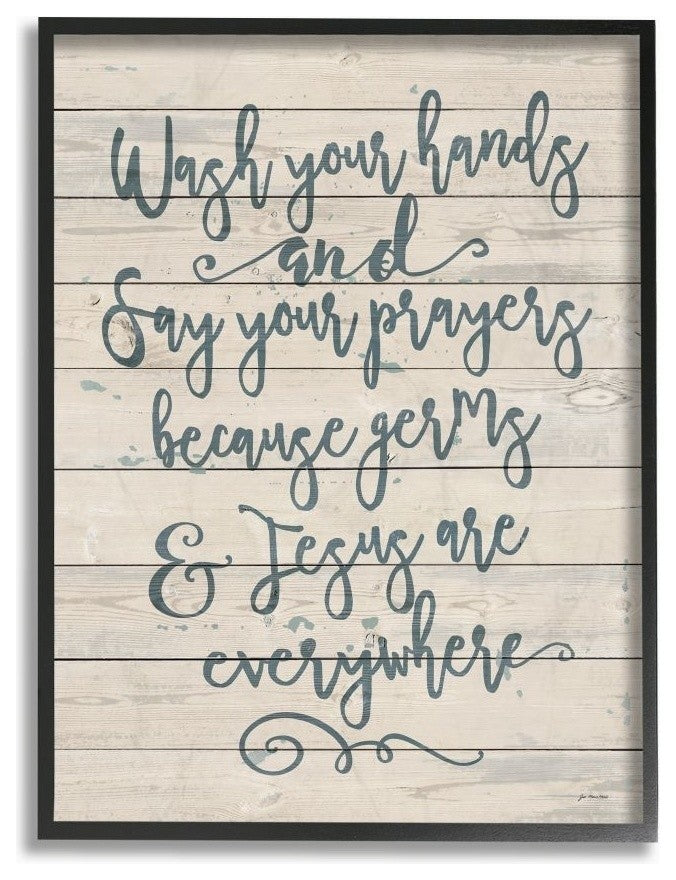 Wash your hands
and
Say your prayers
because gerMs
& Jesus are
everywhere